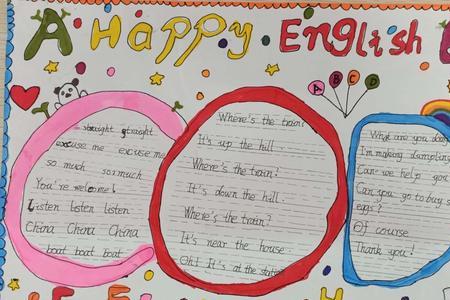 A Happy English
A B C D
straight straight
excuse me excuse me
so much so much
You're welcome!
Listen listen listen
China China China
boat boat boat
Where's the train?
It's up the hill.
Where's the train?
It's down the hill.
Where's the train?
It's near the house.
Oh! It's at the station
What are you doing
I'm making dumplings
Can we help you
Can you go to buy s
eggs?
Of course
Thank you!